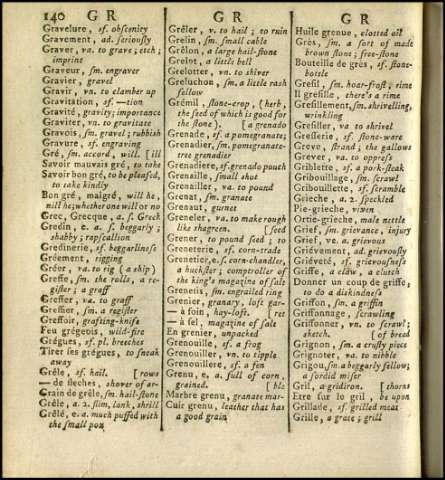 140 G R
G R
G R
Gravelure, sf. obscenity
Gravement, ad. seriously
Graver, va. to grave; etch;
imprint
Graveur, sm. engraver
Gravier, sm. gravel
Gravir, vn. to clamber up
Gravitation, sf. —tion
Gravité, gravity; importance
Graviter, vn. to gravitate
Gravois, sm. gravel; rubbish
Gravure, sf. engraving
Gré, sm. accord, will. [ill
Savoir mauvais gré, to take
Savoir bon gré, to be pleased,
to take kindly
Bon gré, malgré, will he,
nill he; whether one will or no
Grec, Grecque, a. s. Greek
Gredin, e. a. s. beggarly;
shabby; rapscallion
Gredinerie, sf. beggarliness
Gréement, rigging
Gréer, va. to rig (a ship)
Greffe, sm. the rolls, a re-
gister; a graff
Greffer, va. to graff
Greffier, sm. a register
Greffoir, grafting-knife
Feu grégeois, wild-fire
Grégues, sf. pl. breeches
Tirer ses grégues, to sneak
away
Grêle, sf. hail. [rows
— de fleches, shower of ar-
Grain de grêle, sm. hail-stone
Grêle, a. 2. slim, lank, shrill
Grêlé, e. a. much puffed with
the small pox
Grêler, v. to hail; to ruin
Grelin, sm. small cable
Grêlon, a large hail-stone
Grelot, a little bell
Grelotter, vn. to shiver
Greluchon, sm. a little rash
fellow
Grémil, stone-crop, (herb,
the seed of which is good for
the stone). [a grenado
Grenade, sf. a pomegranate;
Grenadier, sm. pomegranate-
tree grenadier
Grenadiere, sf. grenado pouch
Grenaille, small shot
Grenailler, va. to pound
Grenat, sm. granate
Grenaut, gurnet
Greneler, va. to make rough
like shagreen. [seed
Grener, to pound seed; to
Greneterie, sf. corn-trade
Grenetier, e. s. corn-chandler,
a huckster; comptroller of
the king's magazine of salt
Greneris, sm. engrailed ring
Grenier, granary, loft gar-
— à foin, hay-loft. [ret
— à sel, magazine of salt
En grenier, unpacked
Grenouille, sf. a frog
Grenouiller, vn. to tipple
Grenouillere, sf. a fen
Grenu, e. a. full of corn,
grained. [ble
Marbre grenu, granate mar-
Cuir grenu, leather that has
a good grain
Huile grenue, clotted oil
Grès, sm. a sort of made
brown stone; free-stone
Bouteille de grès, sf. stone-
bottle
Gresil, sm. hoar-frost; rime
Il gresille, there's a rime
Gresillement, sm. shrivelling,
wrinkling
Gresiller, va to shrivel
Gresserie, sf. stone-ware
Greve, strand; the gallows
Grever, va. to oppress
Griblette, sf. a pork-steak
Gribouillage, sm. scrawl
Gribouillette, sf. scramble
Grieche, a. 2. speckled
Pie-grieche, vixen
Ortie-grieche, male nettle
Grief, sm. grievance, injury
Grief, ve. a. grievous
Grièvement, ad. grievously
Griéveté, sf. grievousness
Griffe, a claw, a clutch
Donner un coup de griffe,
to do a diskindness
Griffon, sm. a griffin
Griffonnage, scrawling
Griffonner, vn. to scrawl;
sketch. [of bread
Grignon, sm. a crusty piece
Grignoter, va. to nibble
Grigou, sm. a beggarly fellow;
a sordid miser
Gril, a gridiron. [thorns
Etre sur le gril, be upon
Grillade, sf. grilled meat
Grille, a grate; grill